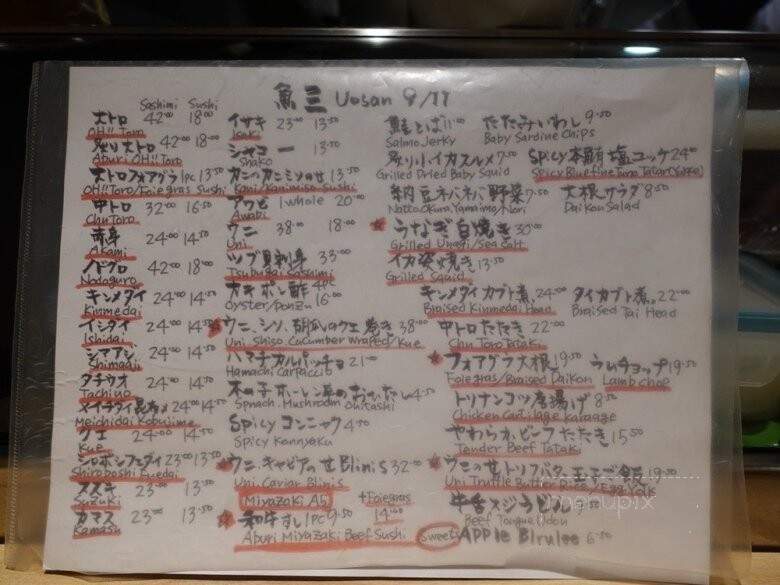 魚三 Uosan 9/17
Sashimi Sushi
大トロ 42.00 18.00
OH!! Toro
炙り大トロ 42.00 18.00
Aburi OH!! Toro
大トロフォアグラ 1pc 13.50
OH!! Toro/Foiegras Sushi
中トロ 32.00 16.50
Chu Toro
赤身 24.00 14.50
Akami
ノドグロ 42.00 18.00
Nodoguro
キンメダイ 24.00 14.50
Kinmedai
イシダイ 24.00 14.50
Ishidai
シマアジ 24.00 14.50
Shimaaji
タチウオ 24.00 14.50
Tachiuo
メイチダイ昆布〆 24.00 14.50
Meichidai Kobujime
クエ 24.00 14.50
Kue
シロボシフエダイ 23.00 13.50
Shiroboshi Fuedai
スズキ 23.00 13.50
Suzuki
カマス 23.00 13.50
Kamasu
イサキ 23.00 13.50
Isaki
シャコ ー 13.50
Shako
カニのカニミソのせ 13.50
Kani/Kanimiso Sushi
アワビ 1 whole 20.00
Awabi
ウニ 38.00 18.00
Uni
ツブ貝刺身 33.00
Tsubugai Sashimi
カキポン酢 4pc 16.00
Oyster/Ponzu
ウニ、シソ、胡瓜のクエ巻き 38.00
Uni, Shiso Cucumber Wraped/Kue
ハマチカルパッチョ 21.00
Hamachi Carpaccio
木の子ホーレン草のおひたし 4.50
Spinach, Mushroom Ohitashi
Spicy コンニャク 4.50
Spicy Konnyaku
ウニ、キャビアのせ Blinis 32.00
Uni, Caviar Blinis
Miyazaki A5
+ Foiegras
和牛すし 1pc 9.50 14.00
Aburi Miyazaki Beef Sushi
鮭とば 11.00
Salmo Jerky
たたみいわし 9.50
Baby Sardine Chips
炙り小イカスルメ 7.50
Grilled Dried Baby Squid
Spicy 本鮪塩ユッケ 24.00
Spicy Bluefine Tuna Tatar (Yukke)
納豆ネバネバ野菜 9.50
Natto, Okura, Yamaimo, Nori
大根サラダ 8.50
Daikon Salad
うなぎ白焼き 30.00
Grilled Unagi/Sea Salt
イカ姿焼き 13.50
Grilled Squid
キンメダイカブト煮 24.00
Braised Kinmedai Head
タイカブト煮 22.00
Braised Tai Head
中トロたたき 22.00
Chu Toro Tataki
フォアグラ大根 19.50
Foiegras/Braised Daikon
ラムチョップ 19.50
Lamb Chop
トリナンコツ唐揚げ 8.50
Chicken Cartilage Karaage
やわらかビーフたたき 15.50
Tender Beef Tataki
ウニのせトリフバター玉子ご飯 19.50
Uni Truffle Butter Rice/Egg Yolk
牛舌スジうどん
Beef Tongue Udon
sweets Apple Blrulee 6.50
menupix